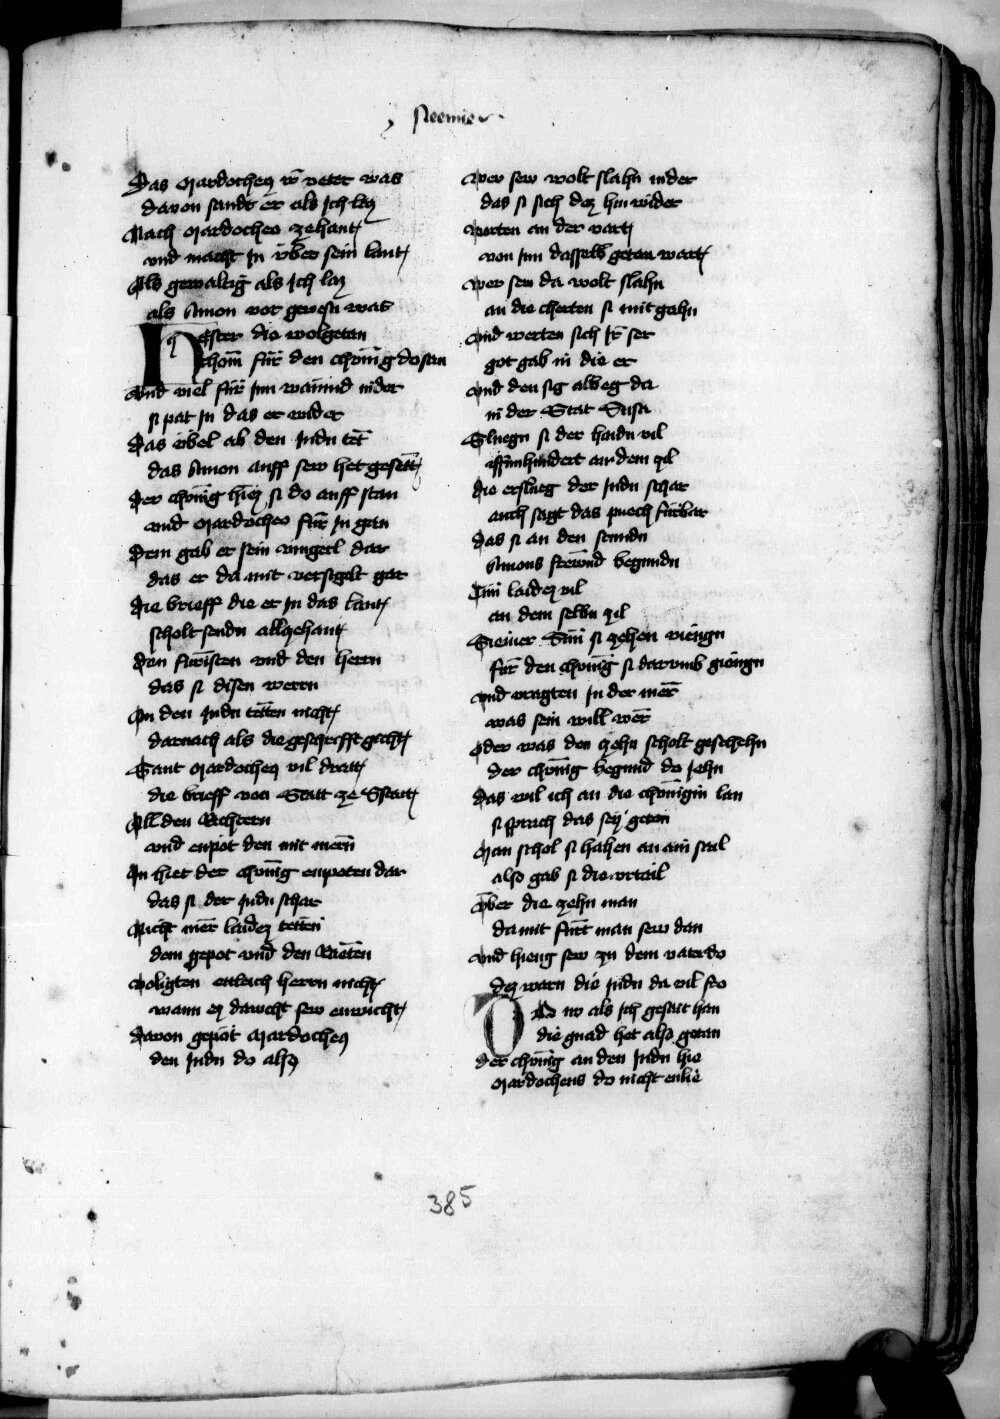 Neemie
Das Mardocheus ir veter was
davon sandt er als Ich las
Nach Mardocheo zehant
vnd macht In vber sein lant
Als gewaltig als Ich las
als Amon vor gewesn was
Hester die wolgetan
chom fur den chonig do san
Vnd viel fur Inn wainund nider
si pat In das er wider
Das vbel ab den Judn tet
das Amon auff sew het gesett
Der chonig hiez si do auff stan
vnd Mardocheo fur In gan
Dem gab er sein vingerl dar
das er da mit versigelt gar
Die brieff die er In das lant
scholt sendn allzehant
Den furisten vnd den herrn
das si disen wern
An den Judn teten nicht
darnach als die geschrifft gicht
Sant Mardocheus vil dratt
die brieff von Statt ze Sstatt
All den Richtern
vnd enpot den mit mern
In hiet der chonig enpoten dar
das si der Judn schar
Nicht mer laides teten
dem gepot vnd den Räten
Voligten etleich herrn nicht
wann ez dawcht sew enwicht
Davon gepot Mardocheus
den Judn do alsus
Wer sew wolt slahn nider
das si sich dez hin wider
Werten an der vart
von Inn dasselb getan wart
Wer sew da wolt slahn
an die cherten si mit gahn
Vnd werten sich Ir ser
got gab in die er
Vnd den sig alweg da
in der Stat Susa
Sluegn si der haidn vil
fFunfhundert an dem zil
Die erslueg der Judn schar
auch sagt das puech furbar
Das si an den stundn
Amons frewnd begundn
Tun laidez vil
an dem selbn zil
Seiner Sun si zehen viengn
fur den chonig si darumb giengn
Vnd vragten In der mer
was sein will wer
Oder was den zehn scholt geschehn
der chonig begund do Jehn
Das wil ich an die chonigin lan
si sprach das sey getan
Man schol si hahen an ain sail
also gab si die vrtail
Vber die zehn man
da mit furt man sew dan
Vnd hieng sew zu dem vater do
dez warn die Judn da vil fro
Do nv als Ich gesait han
die gnad het also getan
Der chonig an den Judn hie
Mardocheus do nicht enlie
385